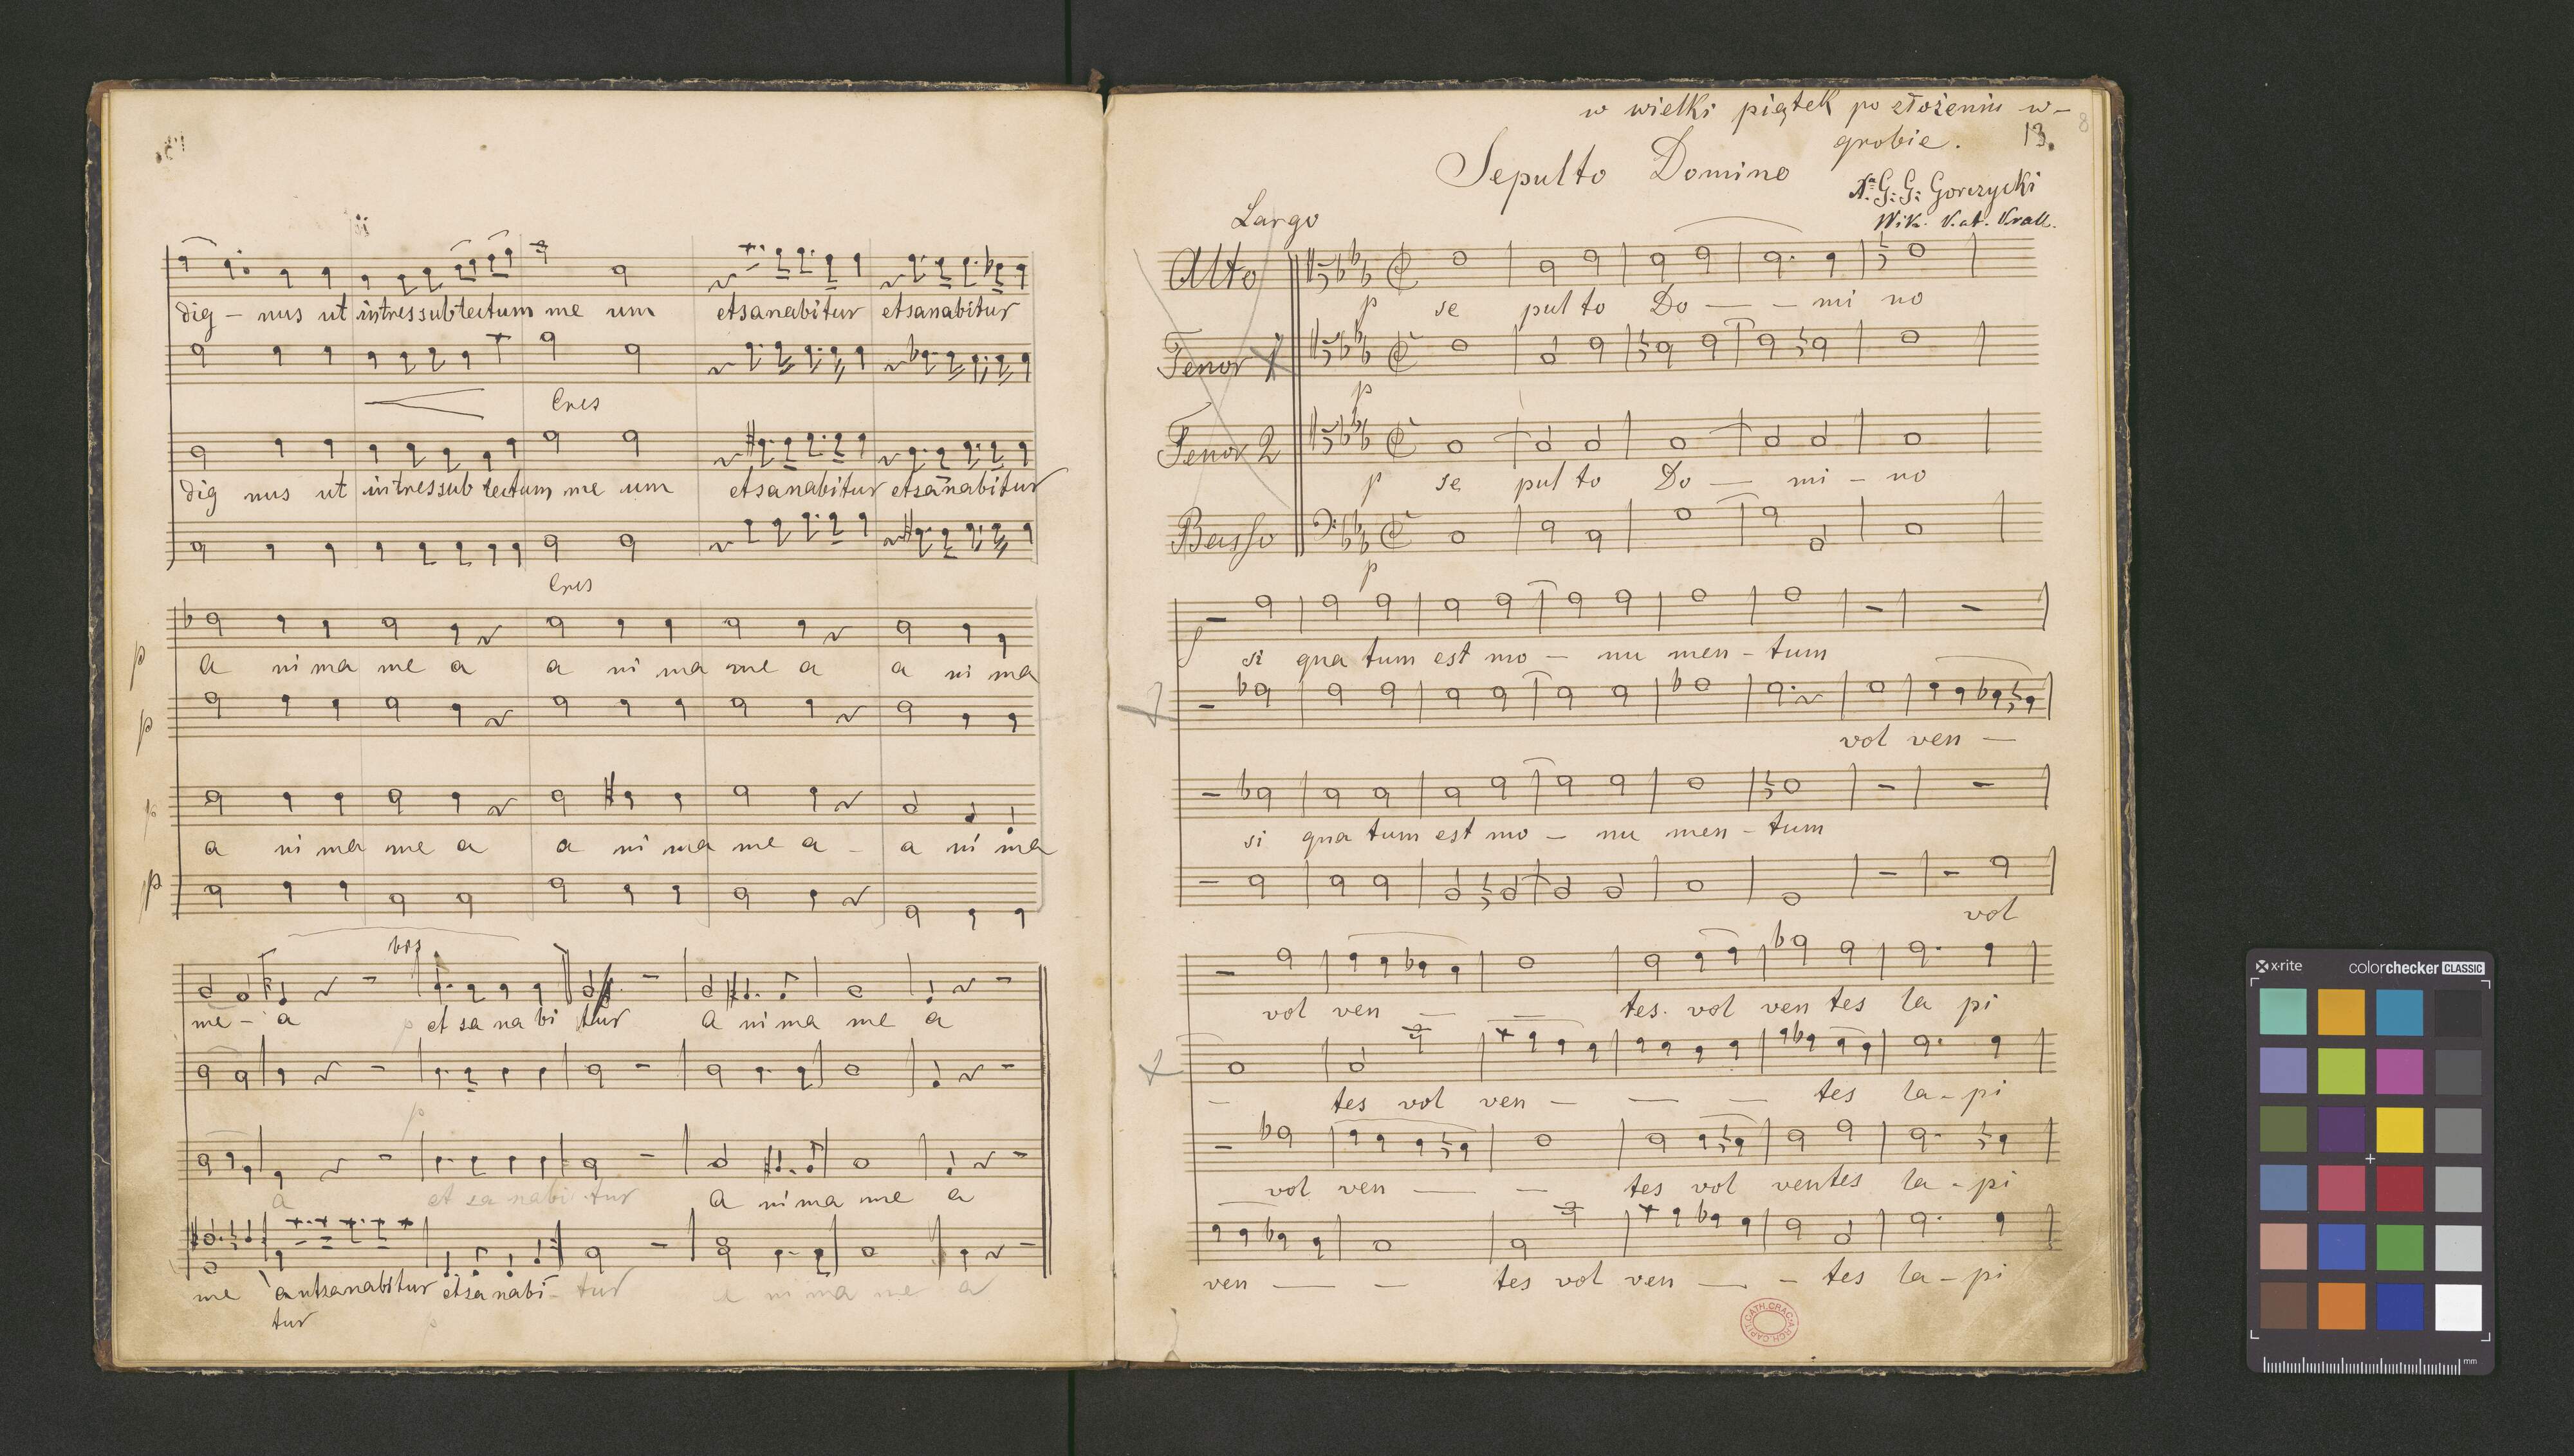 dig - nus ut intres sub tectum me um et sanabitur et sanabitur
Cres
dig nus ut intres sub tectum me um et sanabitur et sanabitur
Cres
p
a ni ma me a a ni ma me a a ni ma
p
p
a ni ma me a a ni ma me a - a ni ma
p
bis
me - a p et sa na bi tur a ni ma me a
p
a et sa nabi tur a ni ma me a
me a et sanabitur et sa nabi - tur a ni ma me a
tur
w wielki piątek po złożeniu w-
grobie. 13.
8
Sepulto Domino
G: G: Gorczycki
Largo
Alto
p se pul to Do - - mi no
Tenor 1
p
Tenor 2
p se pul to Do - mi - no
Basso
p
f si gna tum est mo - nu men - tum
vol ven -
si gna tum est mo - nu men - tum
vol
vol ven - - tes. vol ven tes la pi
- tes vol ven - - - tes la - pi
vol ven - - tes vol ventes la - pi
ven - - tes vol ven - - tes la - pi
ARCH. CAPIT. CATH. CRAC.
x-rite
colorchecker CLASSIC
mm